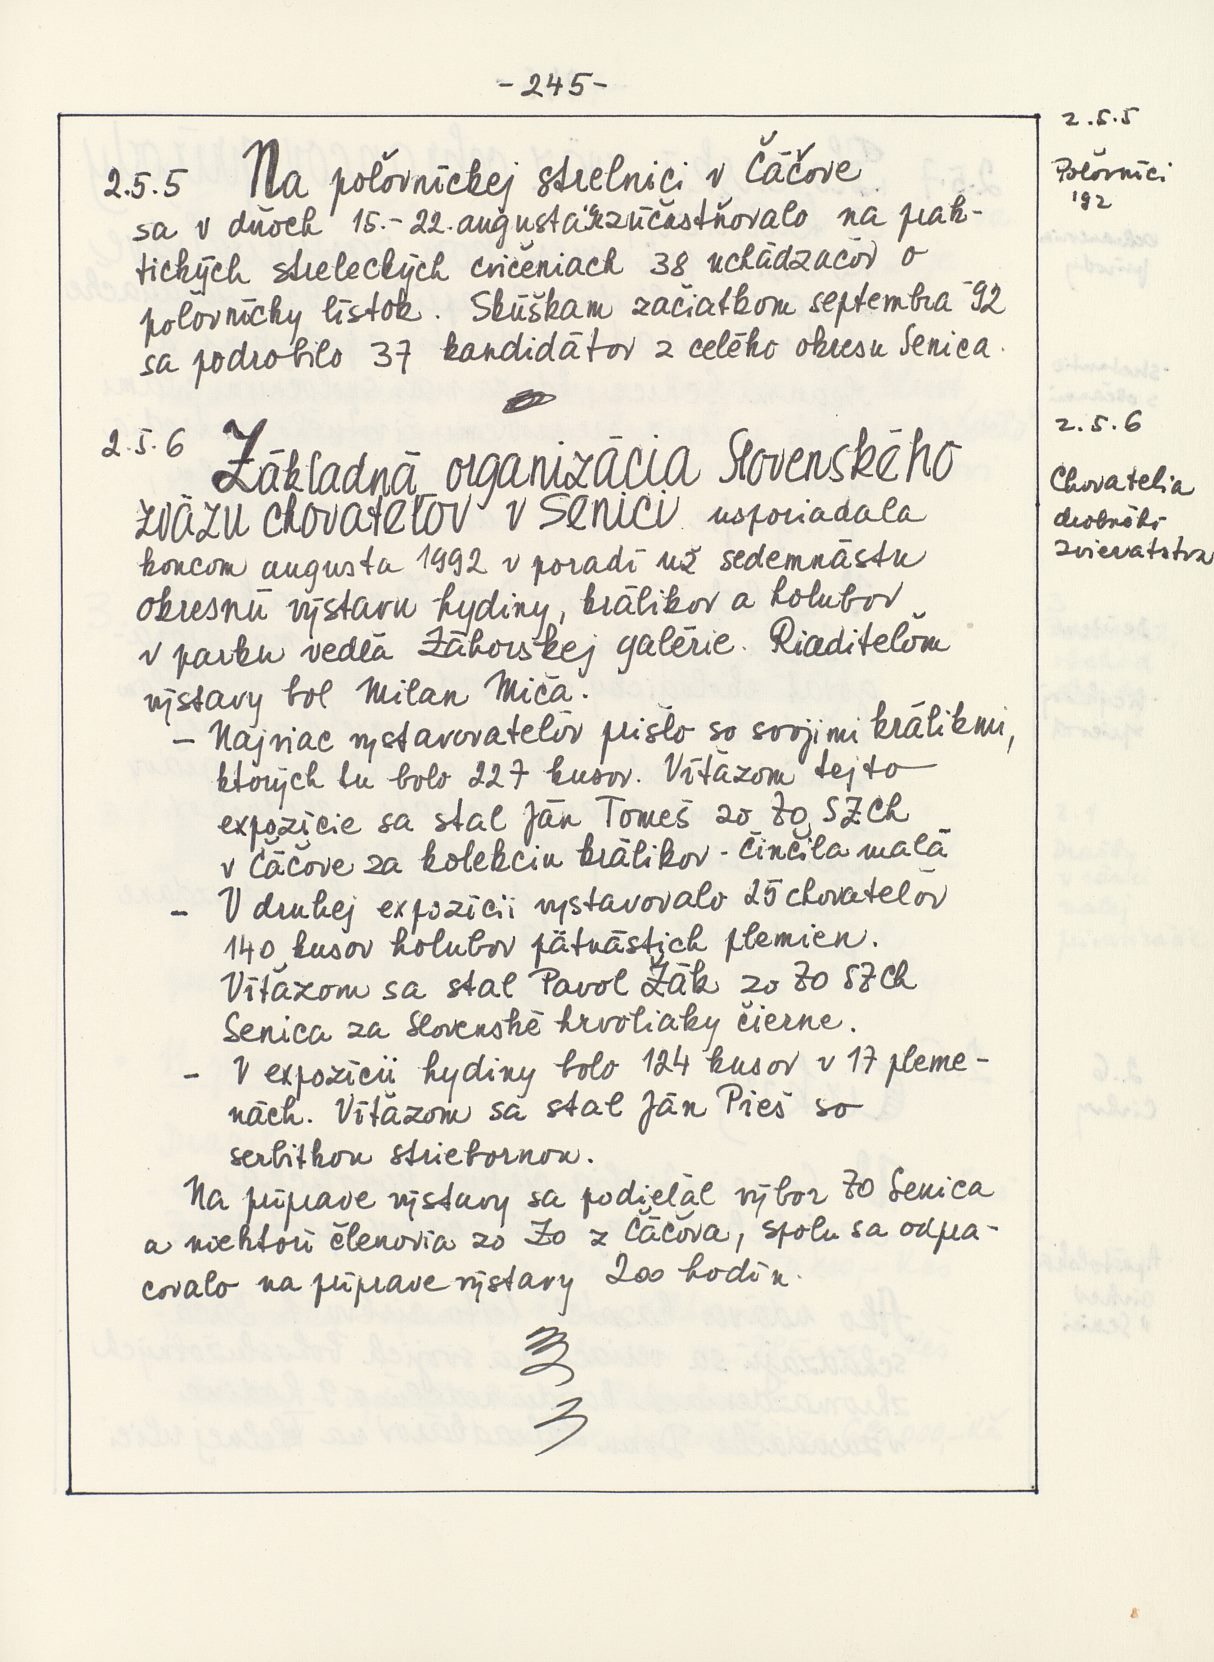 -245-
2.5.5 Na poľovníckej strelnici v Čáčove
sa v dňoch 15.-22. augusta '92 zúčastňovalo na prak-
tických streleckých cvičeniach 38 uchádzačov o
poľovnícky lístok. Skúškam začiatkom septembra '92
sa podrobilo 37 kandidátov z celého okresu Senica.
2.5.6 Základná organizácia Slovenského
zväzu chovateľov v Senici usporiadala
koncom augusta 1992 v poradí už sedemnástu
okresnú výstavu hydiny, králikov a holubov
v parku vedľa Záhorskej galérie. Riaditeľom
výstavy bol Milan Miča.
- Najviac vystavovateľov prišlo so svojimi králikmi,
ktorých tu bolo 227 kusov. Víťazom tejto
expozície sa stal Ján Tomeš zo ZO SZCh
v Čáčove za kolekciu králikov - činčila malá
- V druhej expozícii vystavovalo 25 chovateľov
140 kusov holubov pätnástich plemien.
Víťazom sa stal Pavol Žák zo ZO SZCh
Senica za Slovenské hrvoliaky čierne.
- V expozícii hydiny bolo 124 kusov v 17 pleme-
nách. Víťazom sa stal Ján Pieš so
serbitkou striebornou.
Na príprave výstavy sa podieľal výbor ZO Senica
a niektorí členovia zo ZO z Čáčova, spolu sa odpra-
covalo na príprave výstavy 200 hodín.
2.5.5
Poľovníci
'92
2.5.6
Chovatelia
drobného
zvieratstva